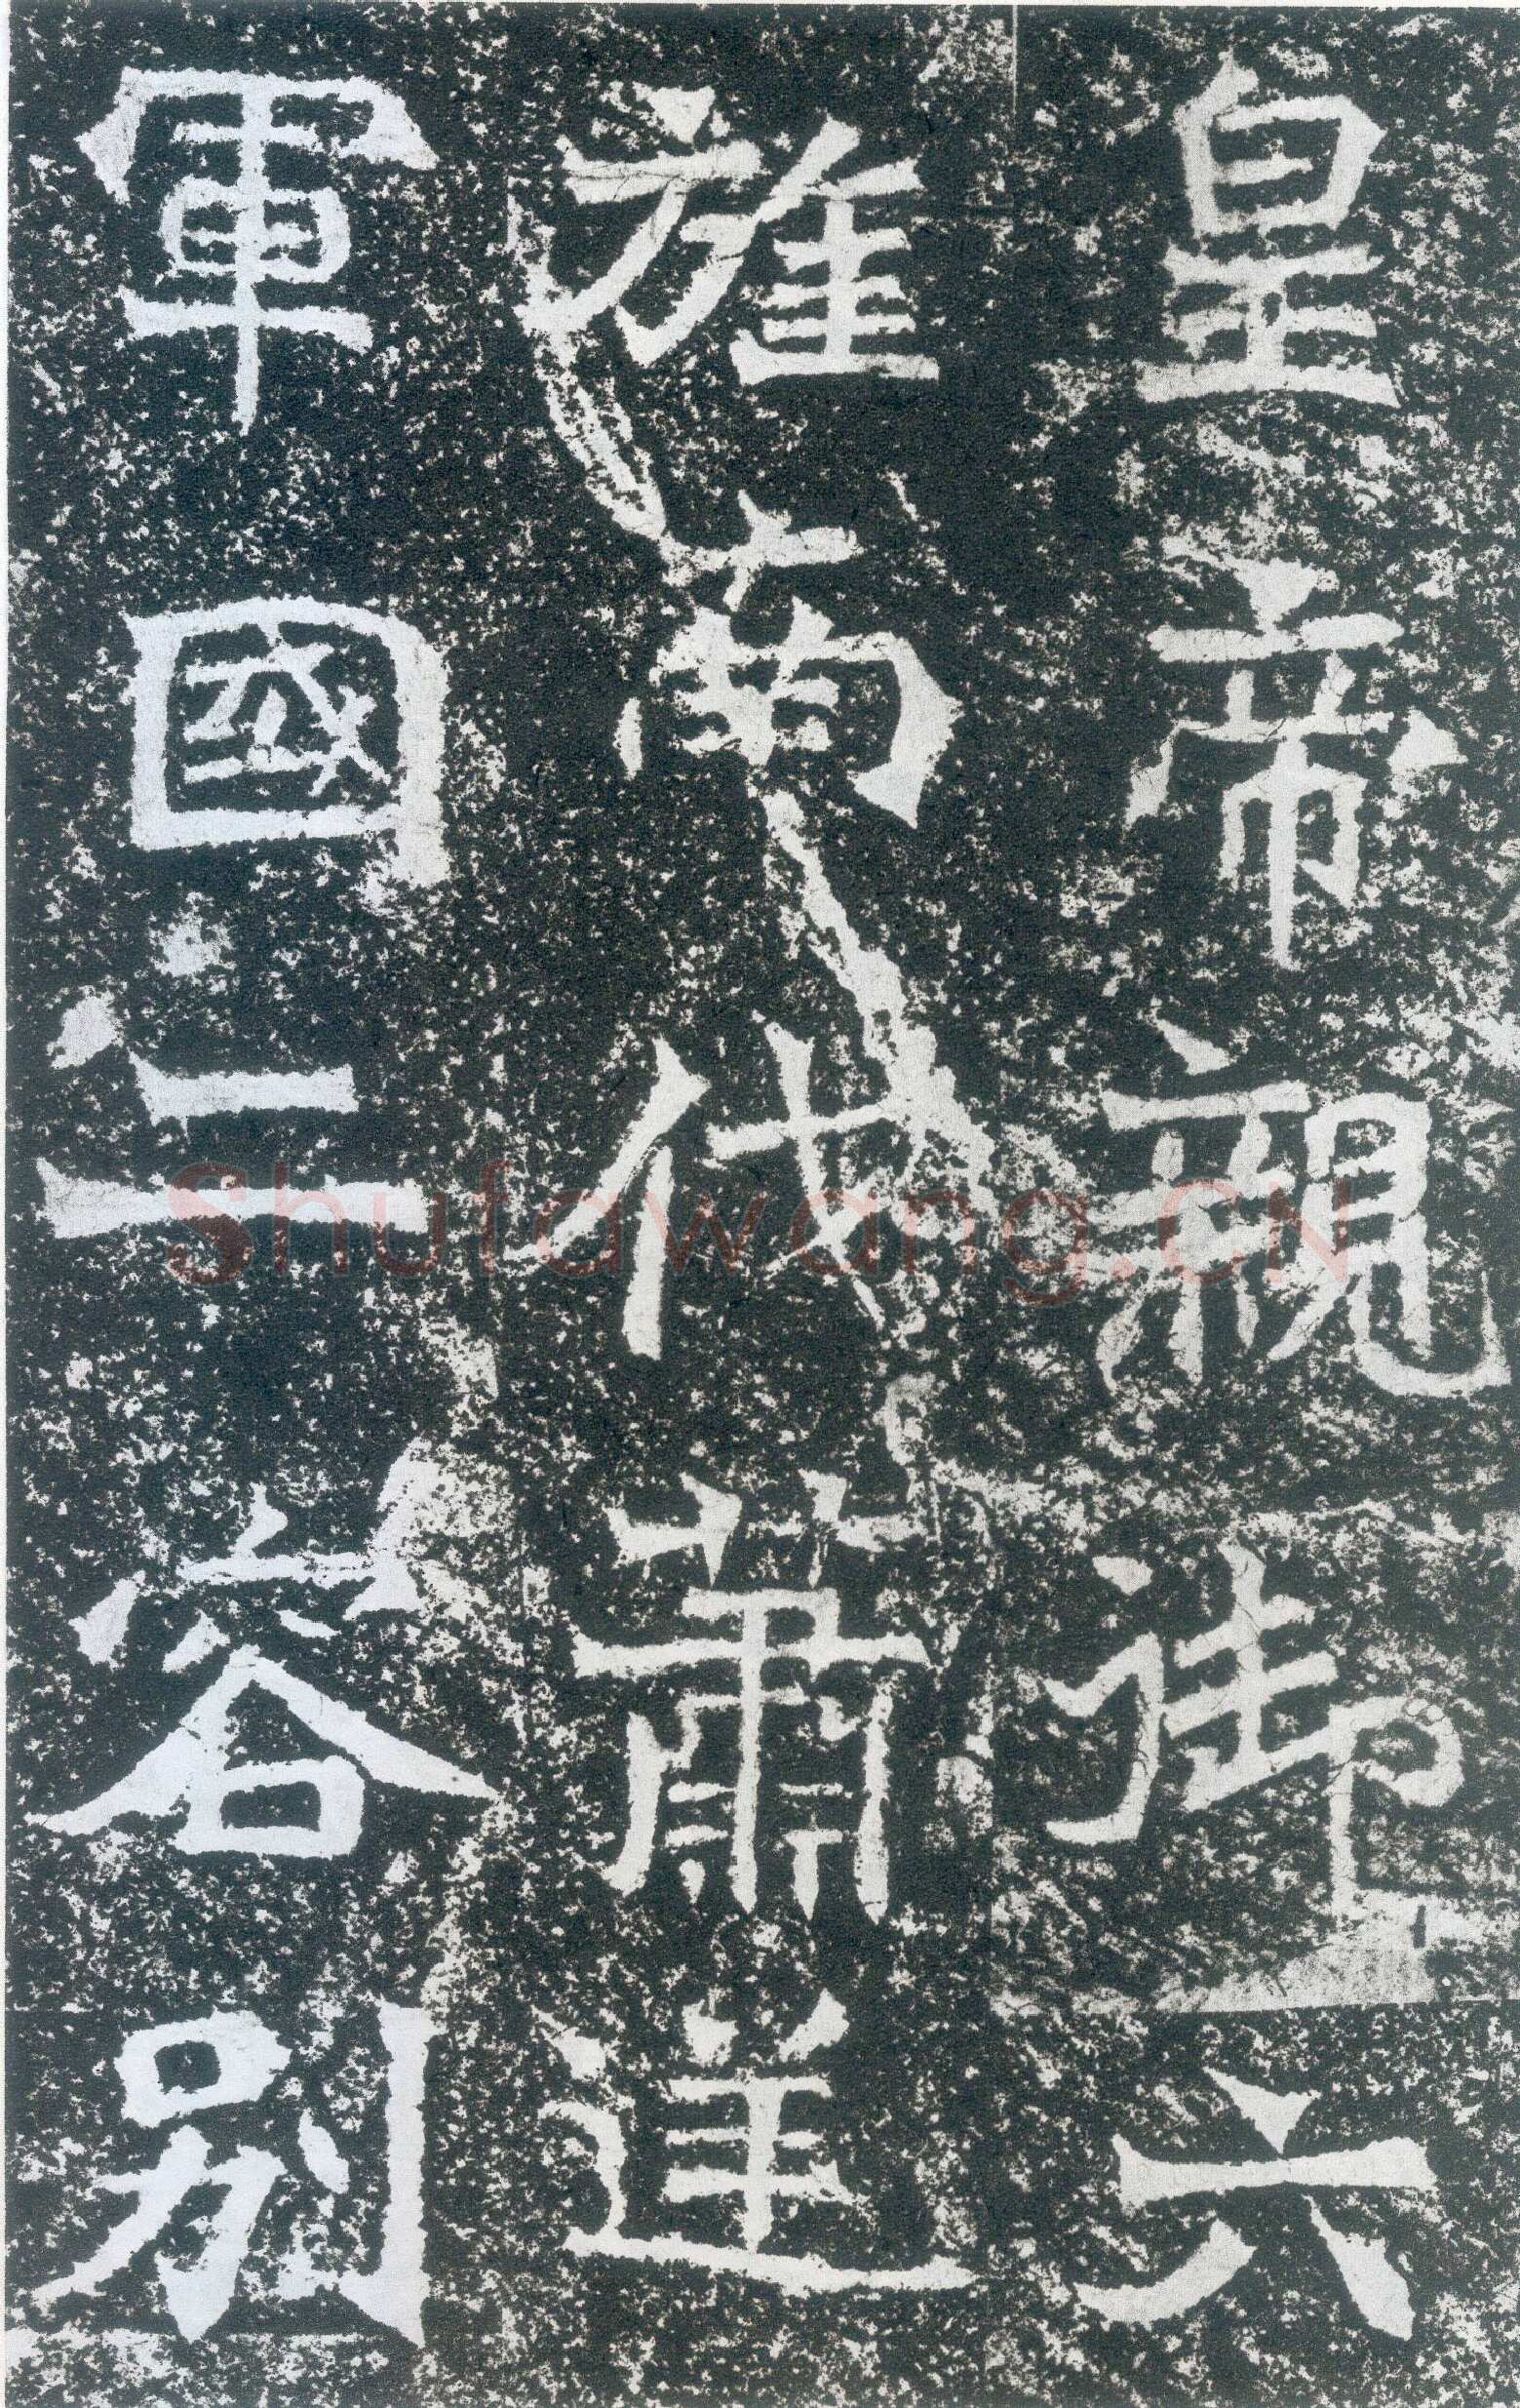 皇帝親御六
旌南伐蕭逆
軍國二容別
Shufawang.CN